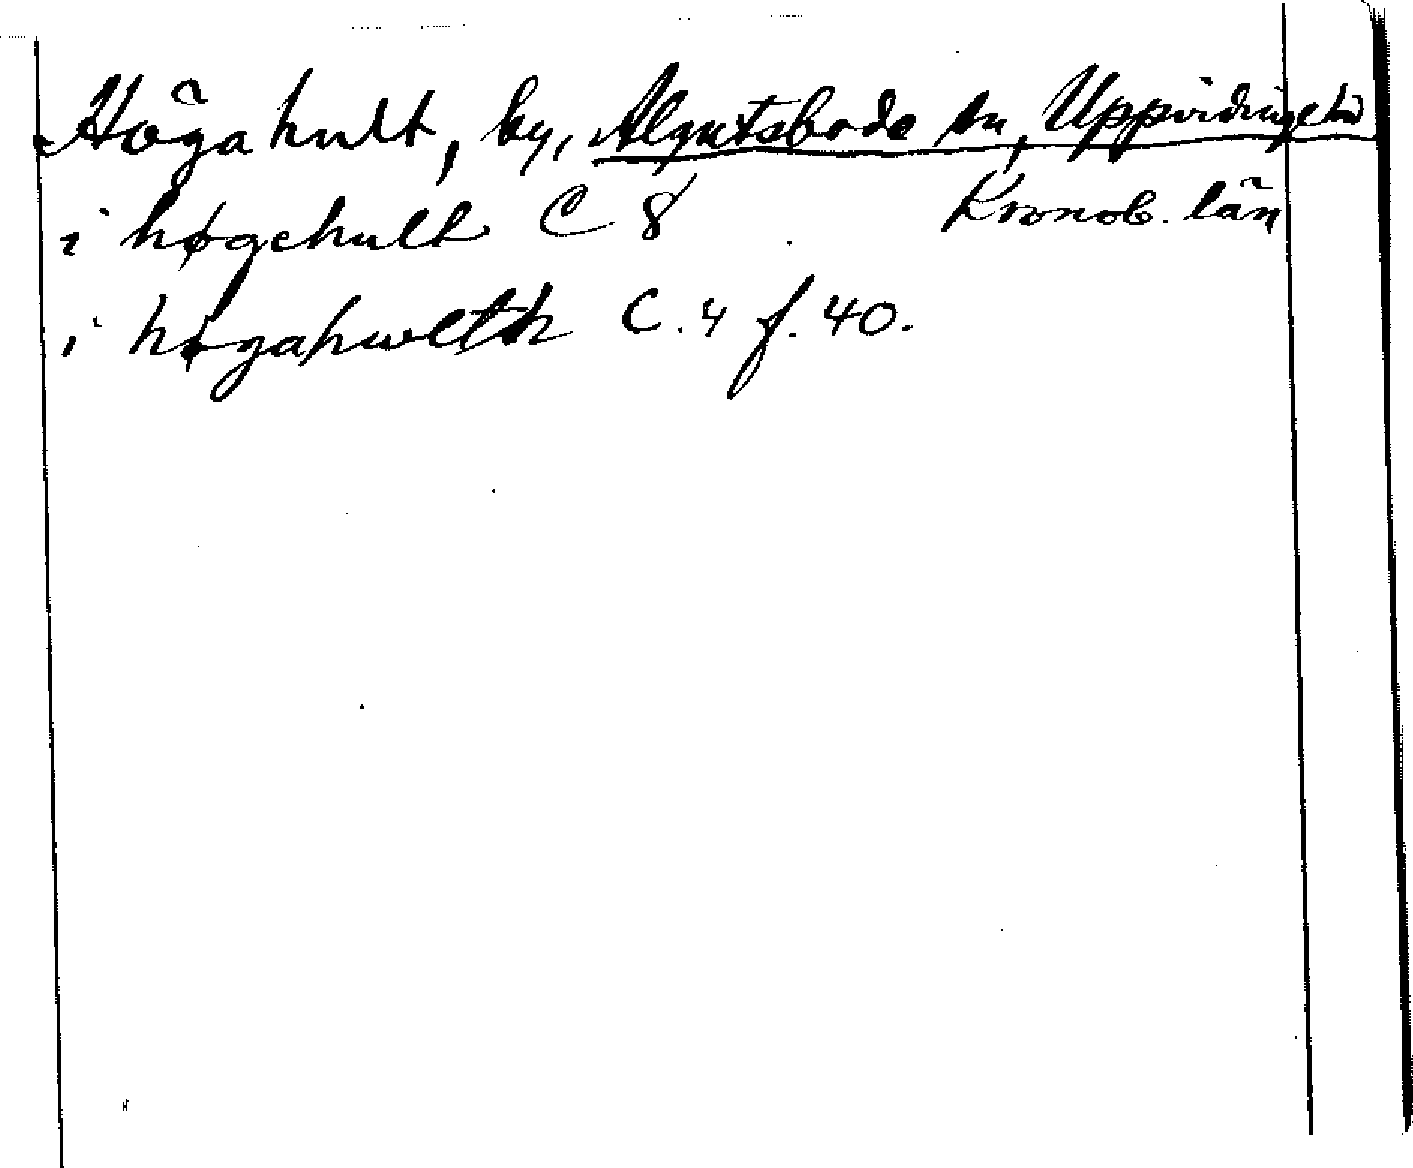 Högahult, by, Algutsboda sn, Uppvidinge hd
Kronob. län
i høgehult C 8
i høgahwlth C. 4 f. 40.